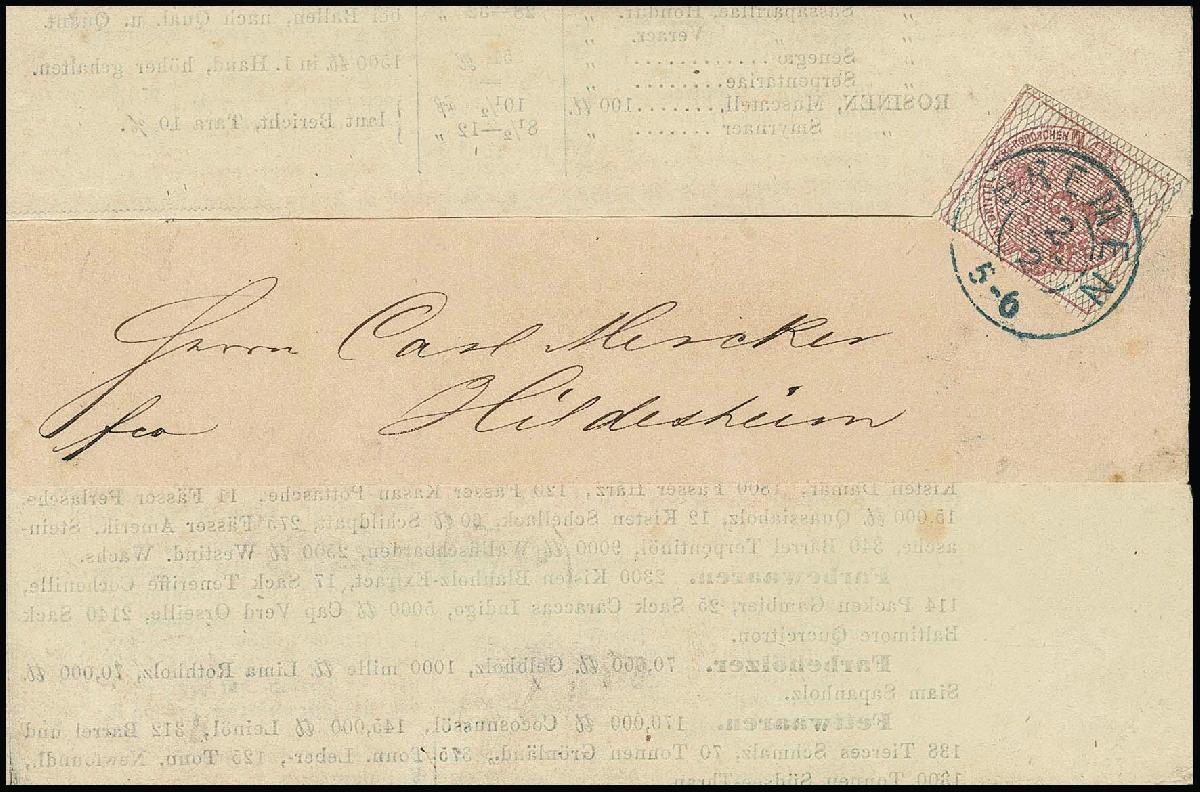 Sassaparillae, Hondur. „ 28—32 „ bei Ballen, nach Qual. u. Quant.
„ „ Veracr. „
„ Senega „ 1500 ℔ in 1. Hand, höher gehalten.
„ Serpentariae „
ROSINEN, Muscatell. 100 ℔. 10½
„ Smyrnaer „ 8½—12 „ } laut Bericht, Tara 10 %.
BREMEN
2
2
5-6
Herrn Carl Mercker
fco Hildesheim
Kisten Damar, 1800 Fässer Harz, 120 Fässer Kasan-Pottasche. 11 Fässer Perlasche,
15.000 ℔ Quassiaholz, 12 Kisten Schellack, 60 ℔ Schildpatt, 275 Fässer Amerik. Stein-
asche, 340 Barrel Terpentinöl, 9000 ℔ Wallfischbarden, 2500 ℔ Westind. Wachs.
Farbewaaren. 2300 Kisten Blauholz-Extract, 17 Sack Teneriffe Cochenille,
114 Packen Gambier, 25 Sack Caraccas Indigo, 5000 ℔ Cap Verd Orseille, 2140 Sack
Baltimore Quercitron.
Farbehölzer. 70,000 ℔. Gelbholz, 1000 mille ℔ Lima Rothholz, 70,000 ℔.
Siam Sapanholz.
Fettwaaren. 170,000 ℔ Cocosnussöl, 145,000 ℔ Leinöl, 312 Barrel und
138 Tierces Schmalz, 70 Tonnen Grönländ., 375 Tonn. Leber-, 125 Tonn. Newfoundl.,
1300 Tonnen Südsee-Thran.